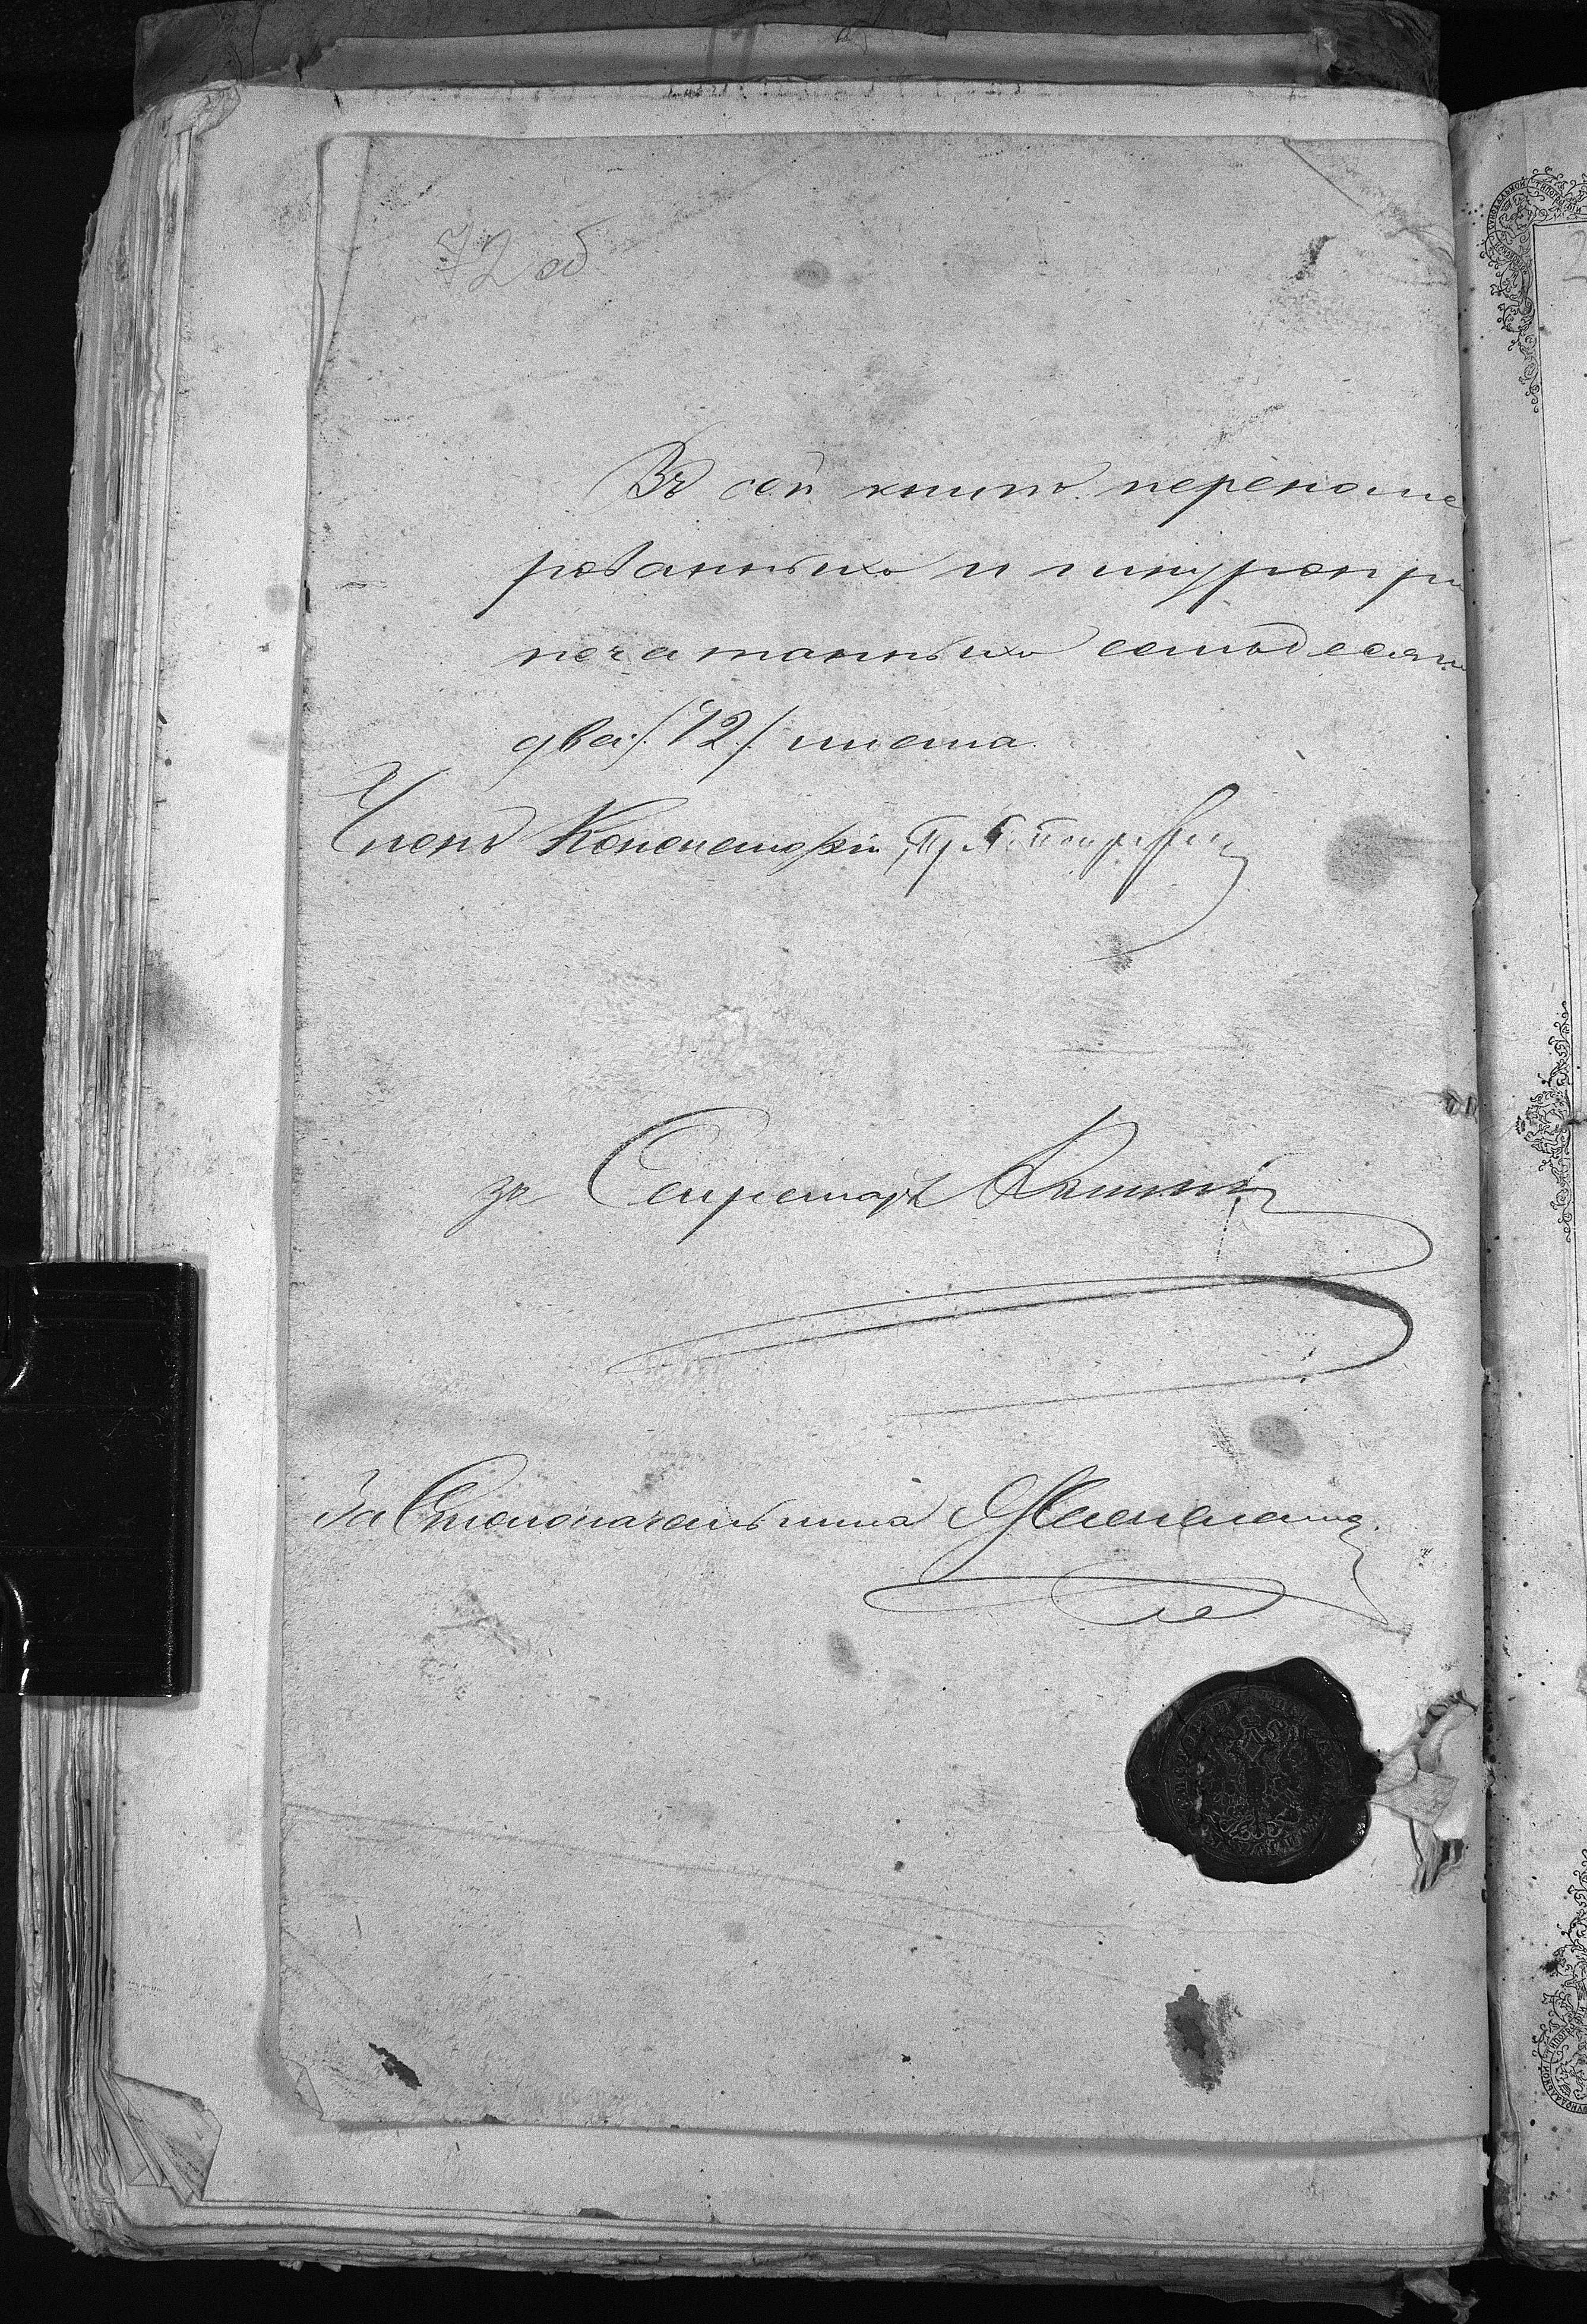 72 об
Въ сей книгѣ перенуме
рованныхъ и шнуропри
печатанныхъ семьдесятъ
два /72/ листа.
Членъ Консисторіи
за Секретаря
За Столоначальника